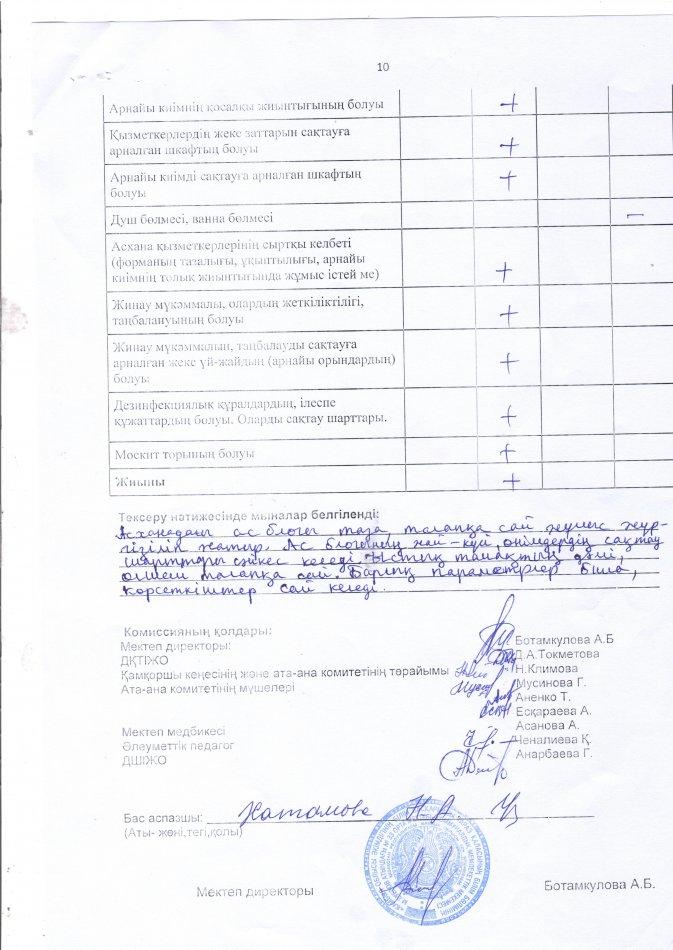 10
Арнайы киімнің қосалқы жиынтығының болуы +
Қызметкерлердің жеке заттарын сақтауға
арналған шкафтың болуы +
Арнайы киімді сақтауға арналған шкафтың
болуы +
Душ бөлмесі, ванна бөлмесі –
Асхана қызметкерлерінің сыртқы келбеті
(форманың тазалығы, ұқыптылығы, арнайы
киімнің толық жиынтығында жұмыс істей ме) +
Жинау мүкәммалы, олардың жеткіліктілігі,
таңбалануының болуы +
Жинау мүкәммалын, таңбалауды сақтауға
арналған жеке үй-жайдың (арнайы орындардың)
болуы +
Дезинфекциялық құралдардың, ілеспе
құжаттардың болуы. Оларды сақтау шарттары. +
Москит торының болуы +
Жиыны +
Тексеру нәтижесінде мыналар белгіленді:
Асханадағы ас блогы таза талапқа сай жұмыс жүр-
гізіліп жатыр. Ас блогының жай-күйі, өнімдердің сақтау
шарттары сәйкес келеді. Ыстық тамақтың дәмі,
өлшемі талапқа сай. Барлық параметрлер
көрсеткіштер сай келеді.
Комиссияның қолдары:
Мектеп директоры: Ботамкулова А.Б
ДҚТІЖО Д.А.Токметова
Қамқоршы кеңесінің және ата-ана комитетінің төрайымы Н.Климова
Ата-ана комитетінің мүшелері Мусинова Г.
Аненко Т.
Есқараева А.
Асанова А.
Мектеп медбикесі Ченалиева Қ.
Әлеуметтік педагог Анарбаева Г.
ДШІЖО
Бас аспазшы: Хатамова Н
(Аты- жөні,тегі,қолы)
Мектеп директоры Ботамкулова А.Б.